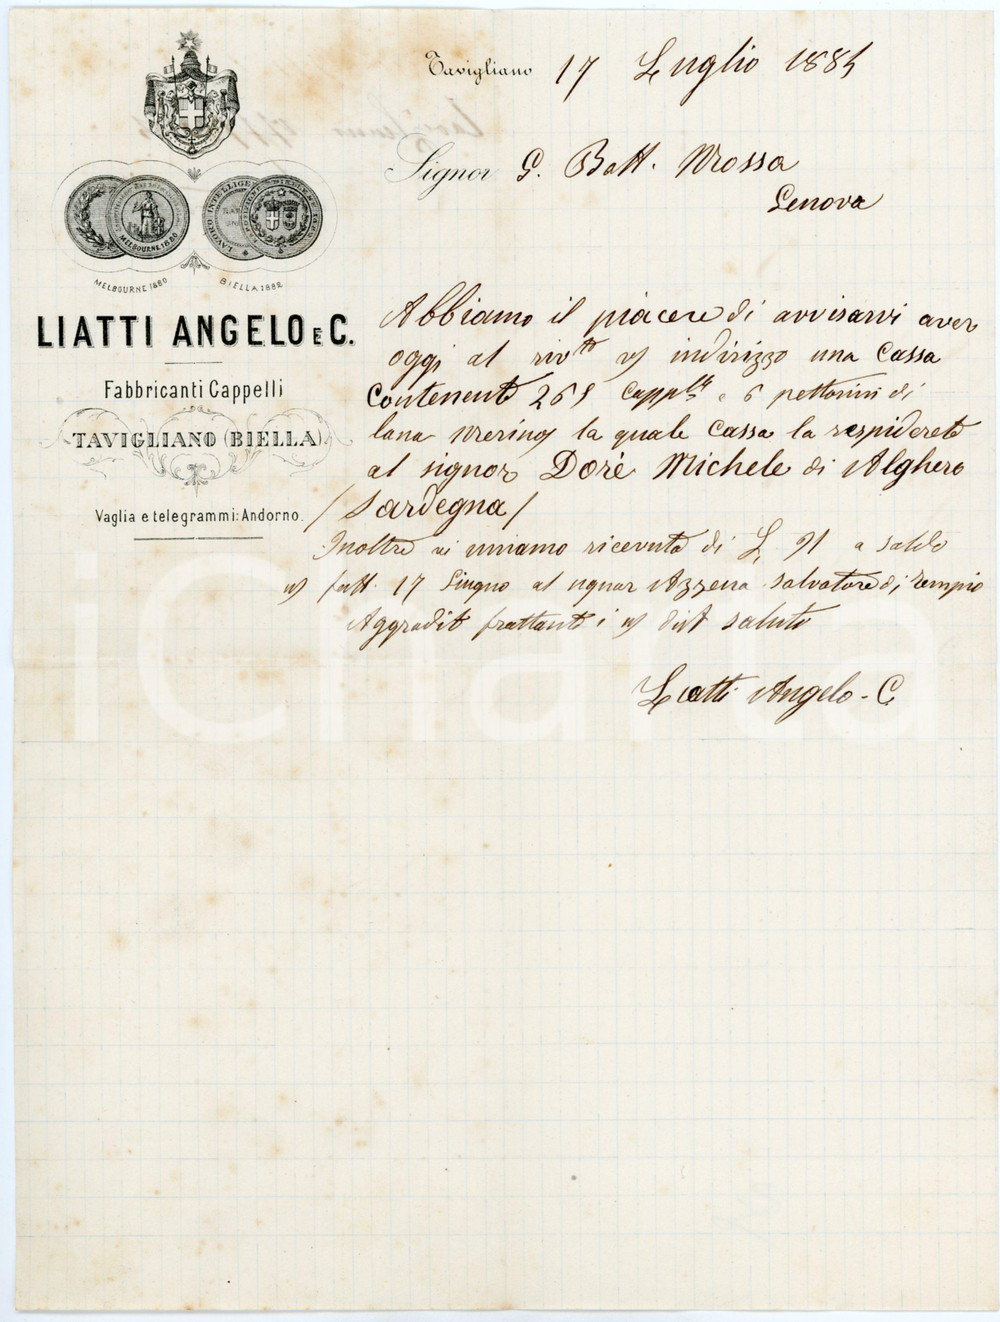 Tavigliano 17 Luglio 1884
Signor G. Batt. Mossa
Genova
MELBOURNE 1880
MELBOURNE 1880
BIELLA 1882
LAVORO INTELLIGE
LIATTI ANGELO E C.
Fabbricanti Cappelli
TAVIGLIANO (BIELLA)
Vaglia e telegrammi: Andorno.
Abbiamo il piacere di avvisarvi aver
oggi al vs/ indirizzo una Cassa
Contenente Capplli e 6 pettorini di
lana Merinos la quale Cassa la respiderete
al signor Dorè Michele di Alghero
/Sardegna/
Inoltre vi uniamo ricevuta di L. 91 a saldo
vs/ fatt. 17 Giugno al signor Azzena Salvatore di Tempio
Aggradite frattanto i ns/ dist saluti
Liatti Angelo - C.
iCharta